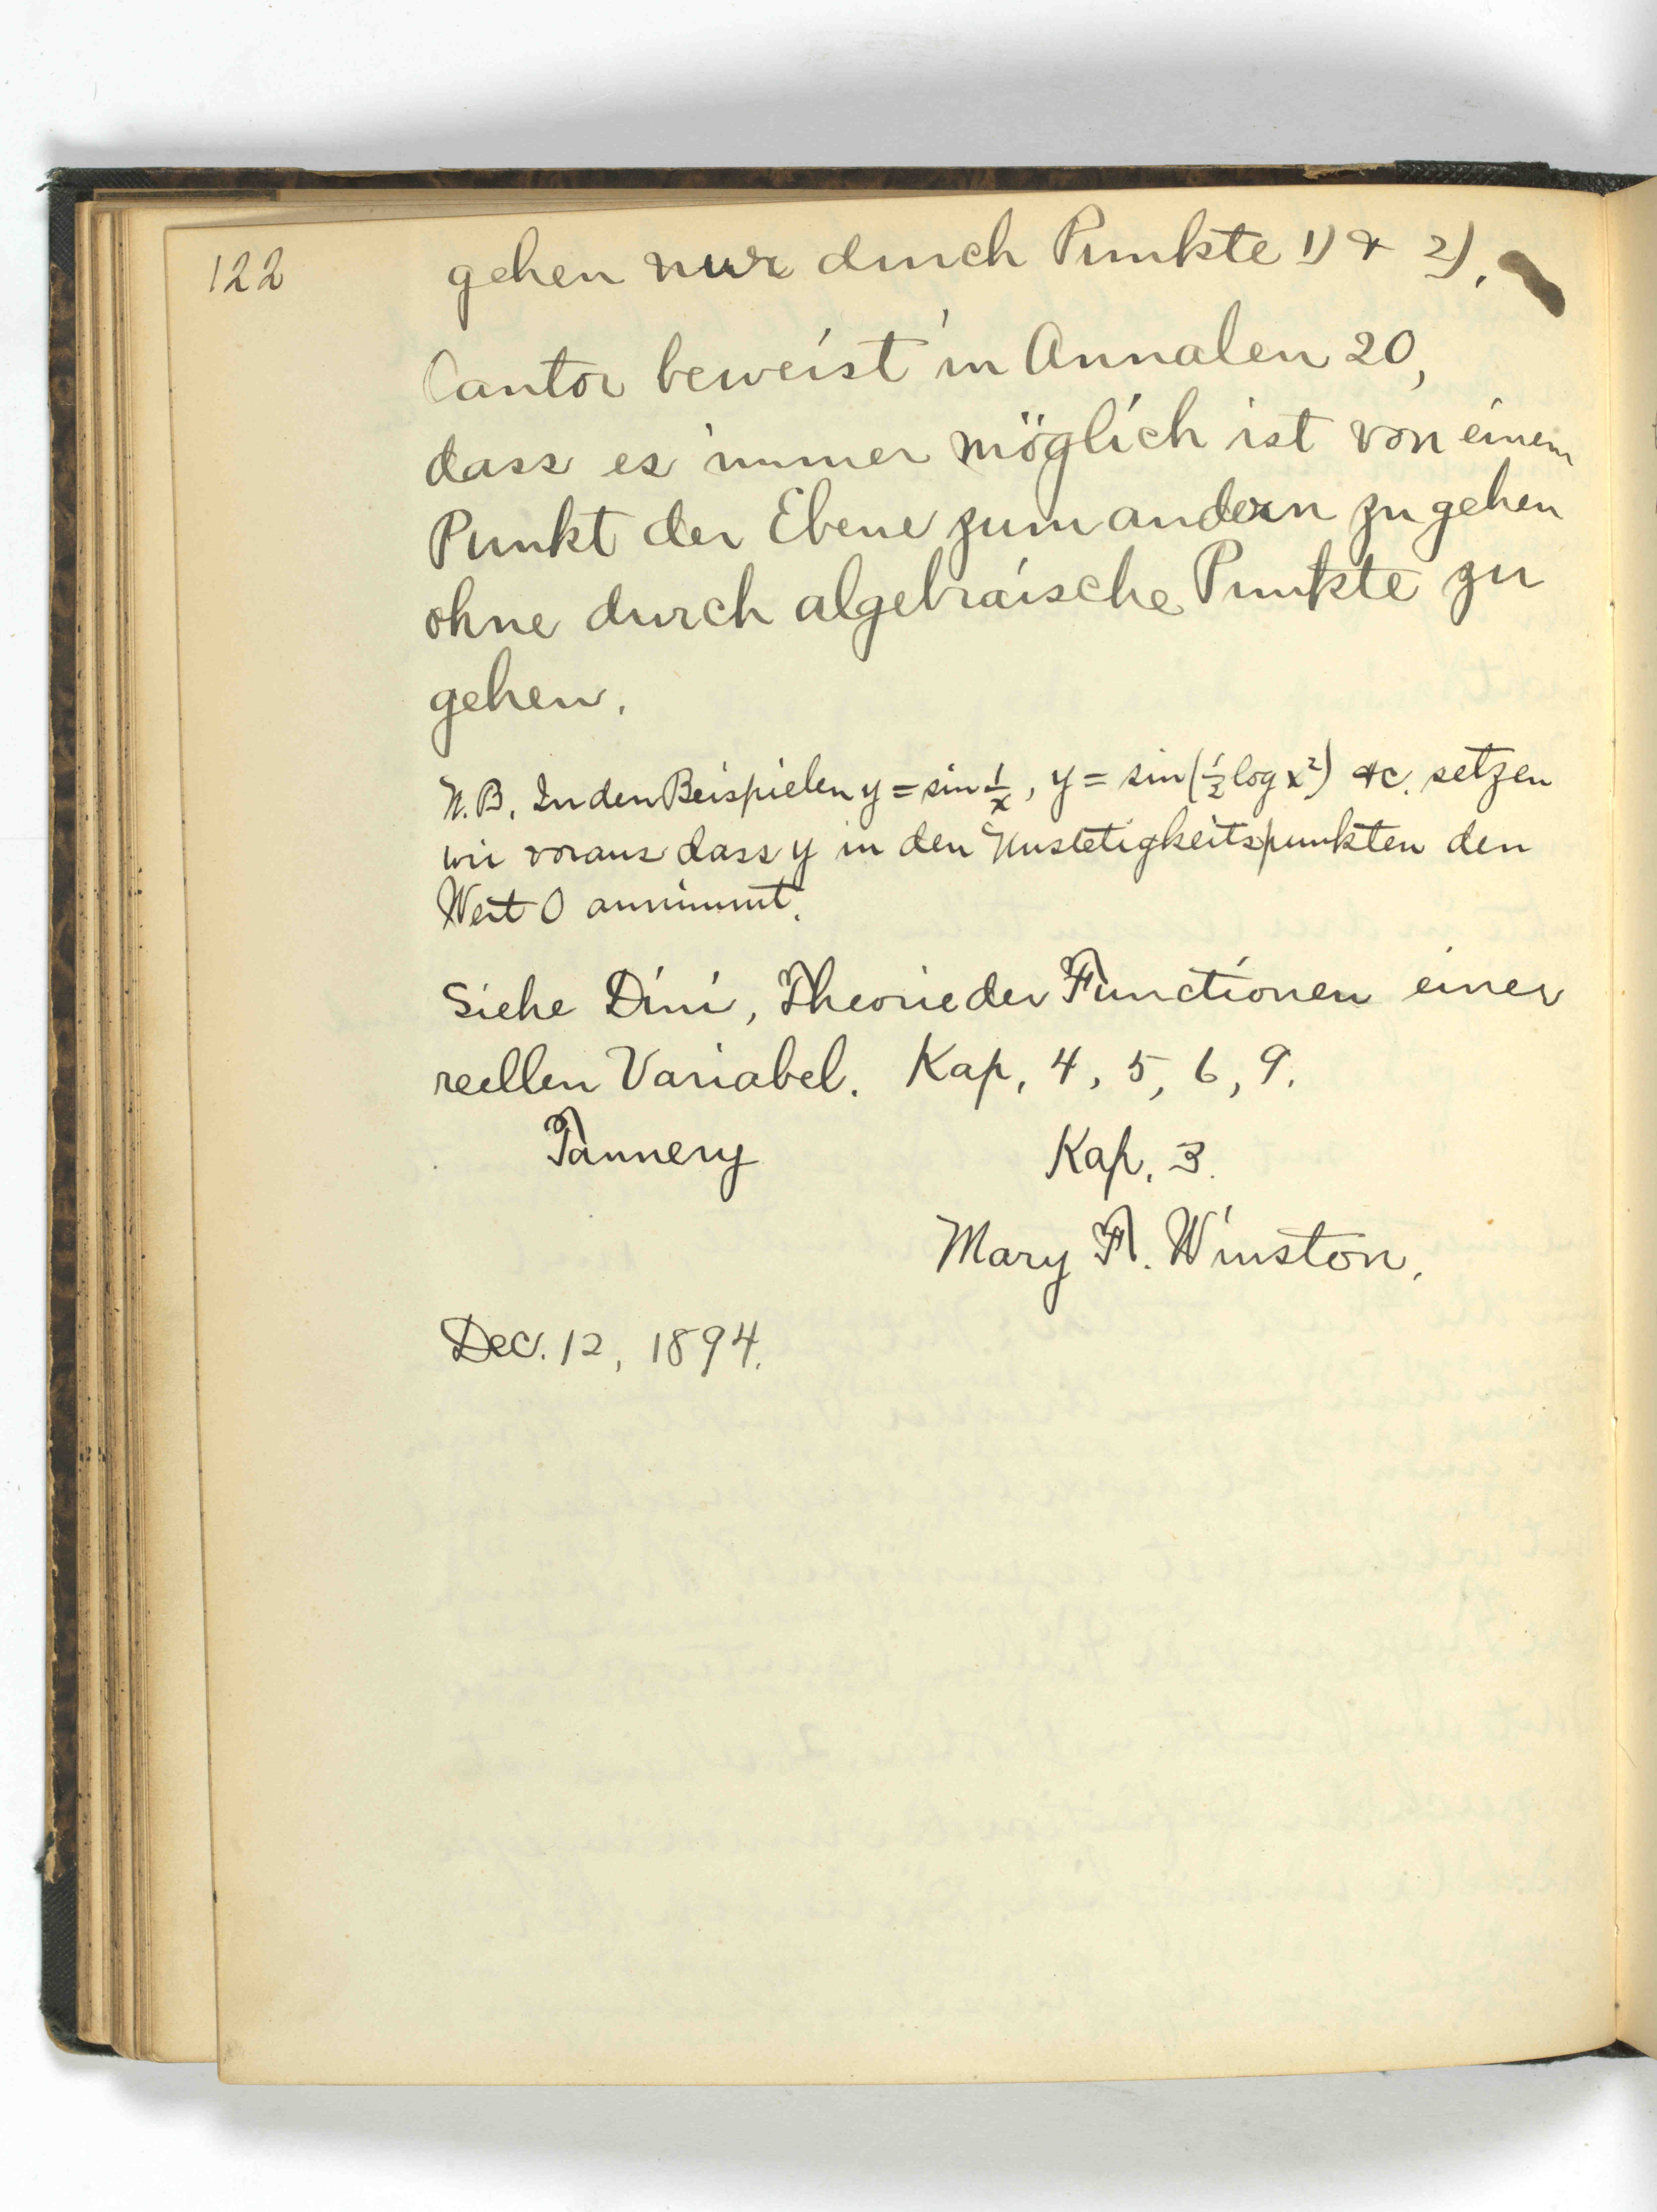 122
gehen nur durch Punkte 1) & 2).
Cantor beweist in Annalen 20,
dass es immer möglich ist von einem
Punkt der Ebene zum andern zu gehen
ohne durch algebraische Punkte zu
gehen.
N.B. In den Beispielen y = sin 1/x, y = sin(1/2 log x²) &c. setzen
wir voraus dass y in den Unstetigkeitspunkten den
Wert 0 annimmt.
Siehe Dini, Theorie der Functionen einer
reellen Variabel. Kap. 4, 5, 6, 9.
Tannery Kap. 3.
Mary F. Winston.
Dec. 12, 1894.